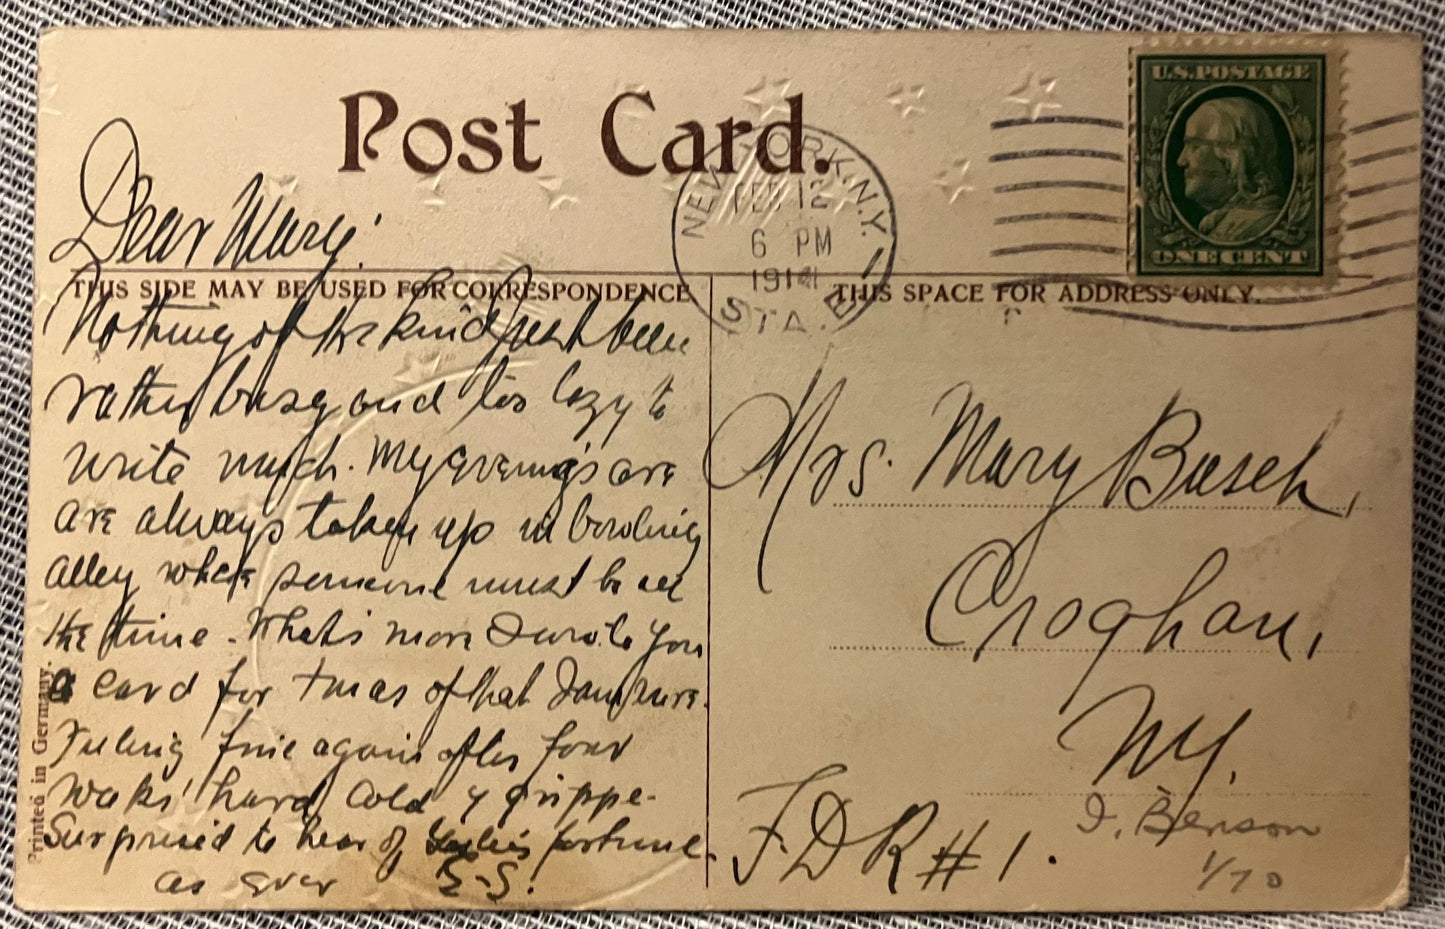 Post Card.
U.S. POSTAGE
ONE CENT
NEW YORK, N.Y.
FEB 12
6 PM
1914
STA.
THIS SIDE MAY BE USED FOR CORRESPONDENCE
THIS SPACE FOR ADDRESS ONLY.
Dear Mary:
Nothing of the kind just been
rather busy and too lazy to
write much. My evenings are
are always taken up in bowling
alley where someone must be all
the time. What's more I wrote you
a card for Xmas of that I am sure.
Feeling fine again after four
weeks' hard cold & grippe.
Surprised to hear of fortune.
as ever E-S!
Printed in Germany.
Mrs. Mary Busch,
Croghan,
NY.
F.D R # 1.
I. Benson
1/70